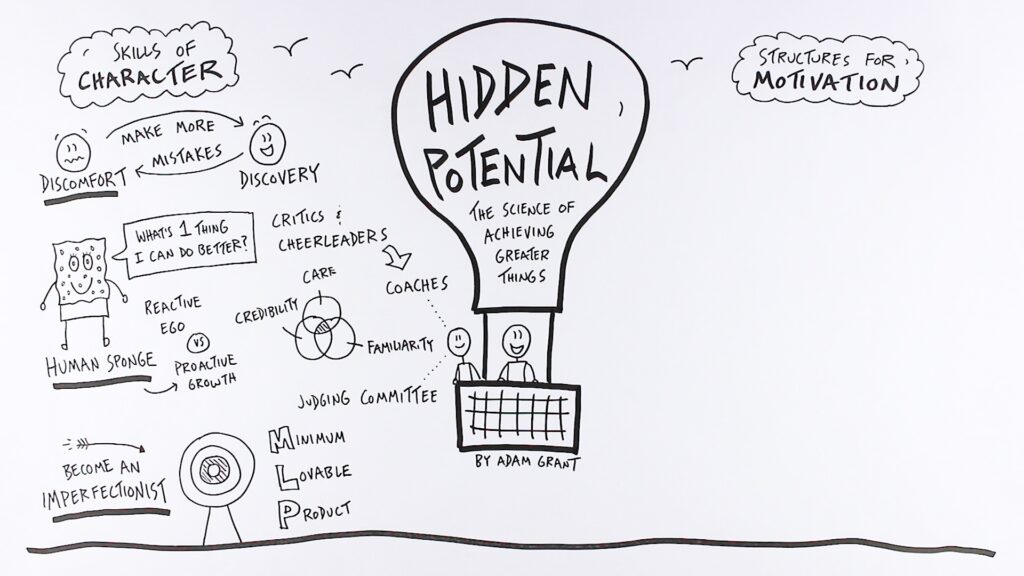 SKILLS OF
CHARACTER
MAKE MORE
MISTAKES
DISCOMFORT
DISCOVERY
WHAT'S 1 THING
I CAN DO BETTER?
REACTIVE
EGO
VS
PROACTIVE
GROWTH
HUMAN SPONGE
CRITICS &
CHEERLEADERS
COACHES
CARE
CREDIBILITY
FAMILIARITY
JUDGING COMMITTEE
BECOME AN
IMPERFECTIONIST
MINIMUM
LOVABLE
PRODUCT
HIDDEN
POTENTIAL
THE SCIENCE OF
ACHIEVING
GREATER
THINGS
BY ADAM GRANT
STRUCTURES FOR
MOTIVATION